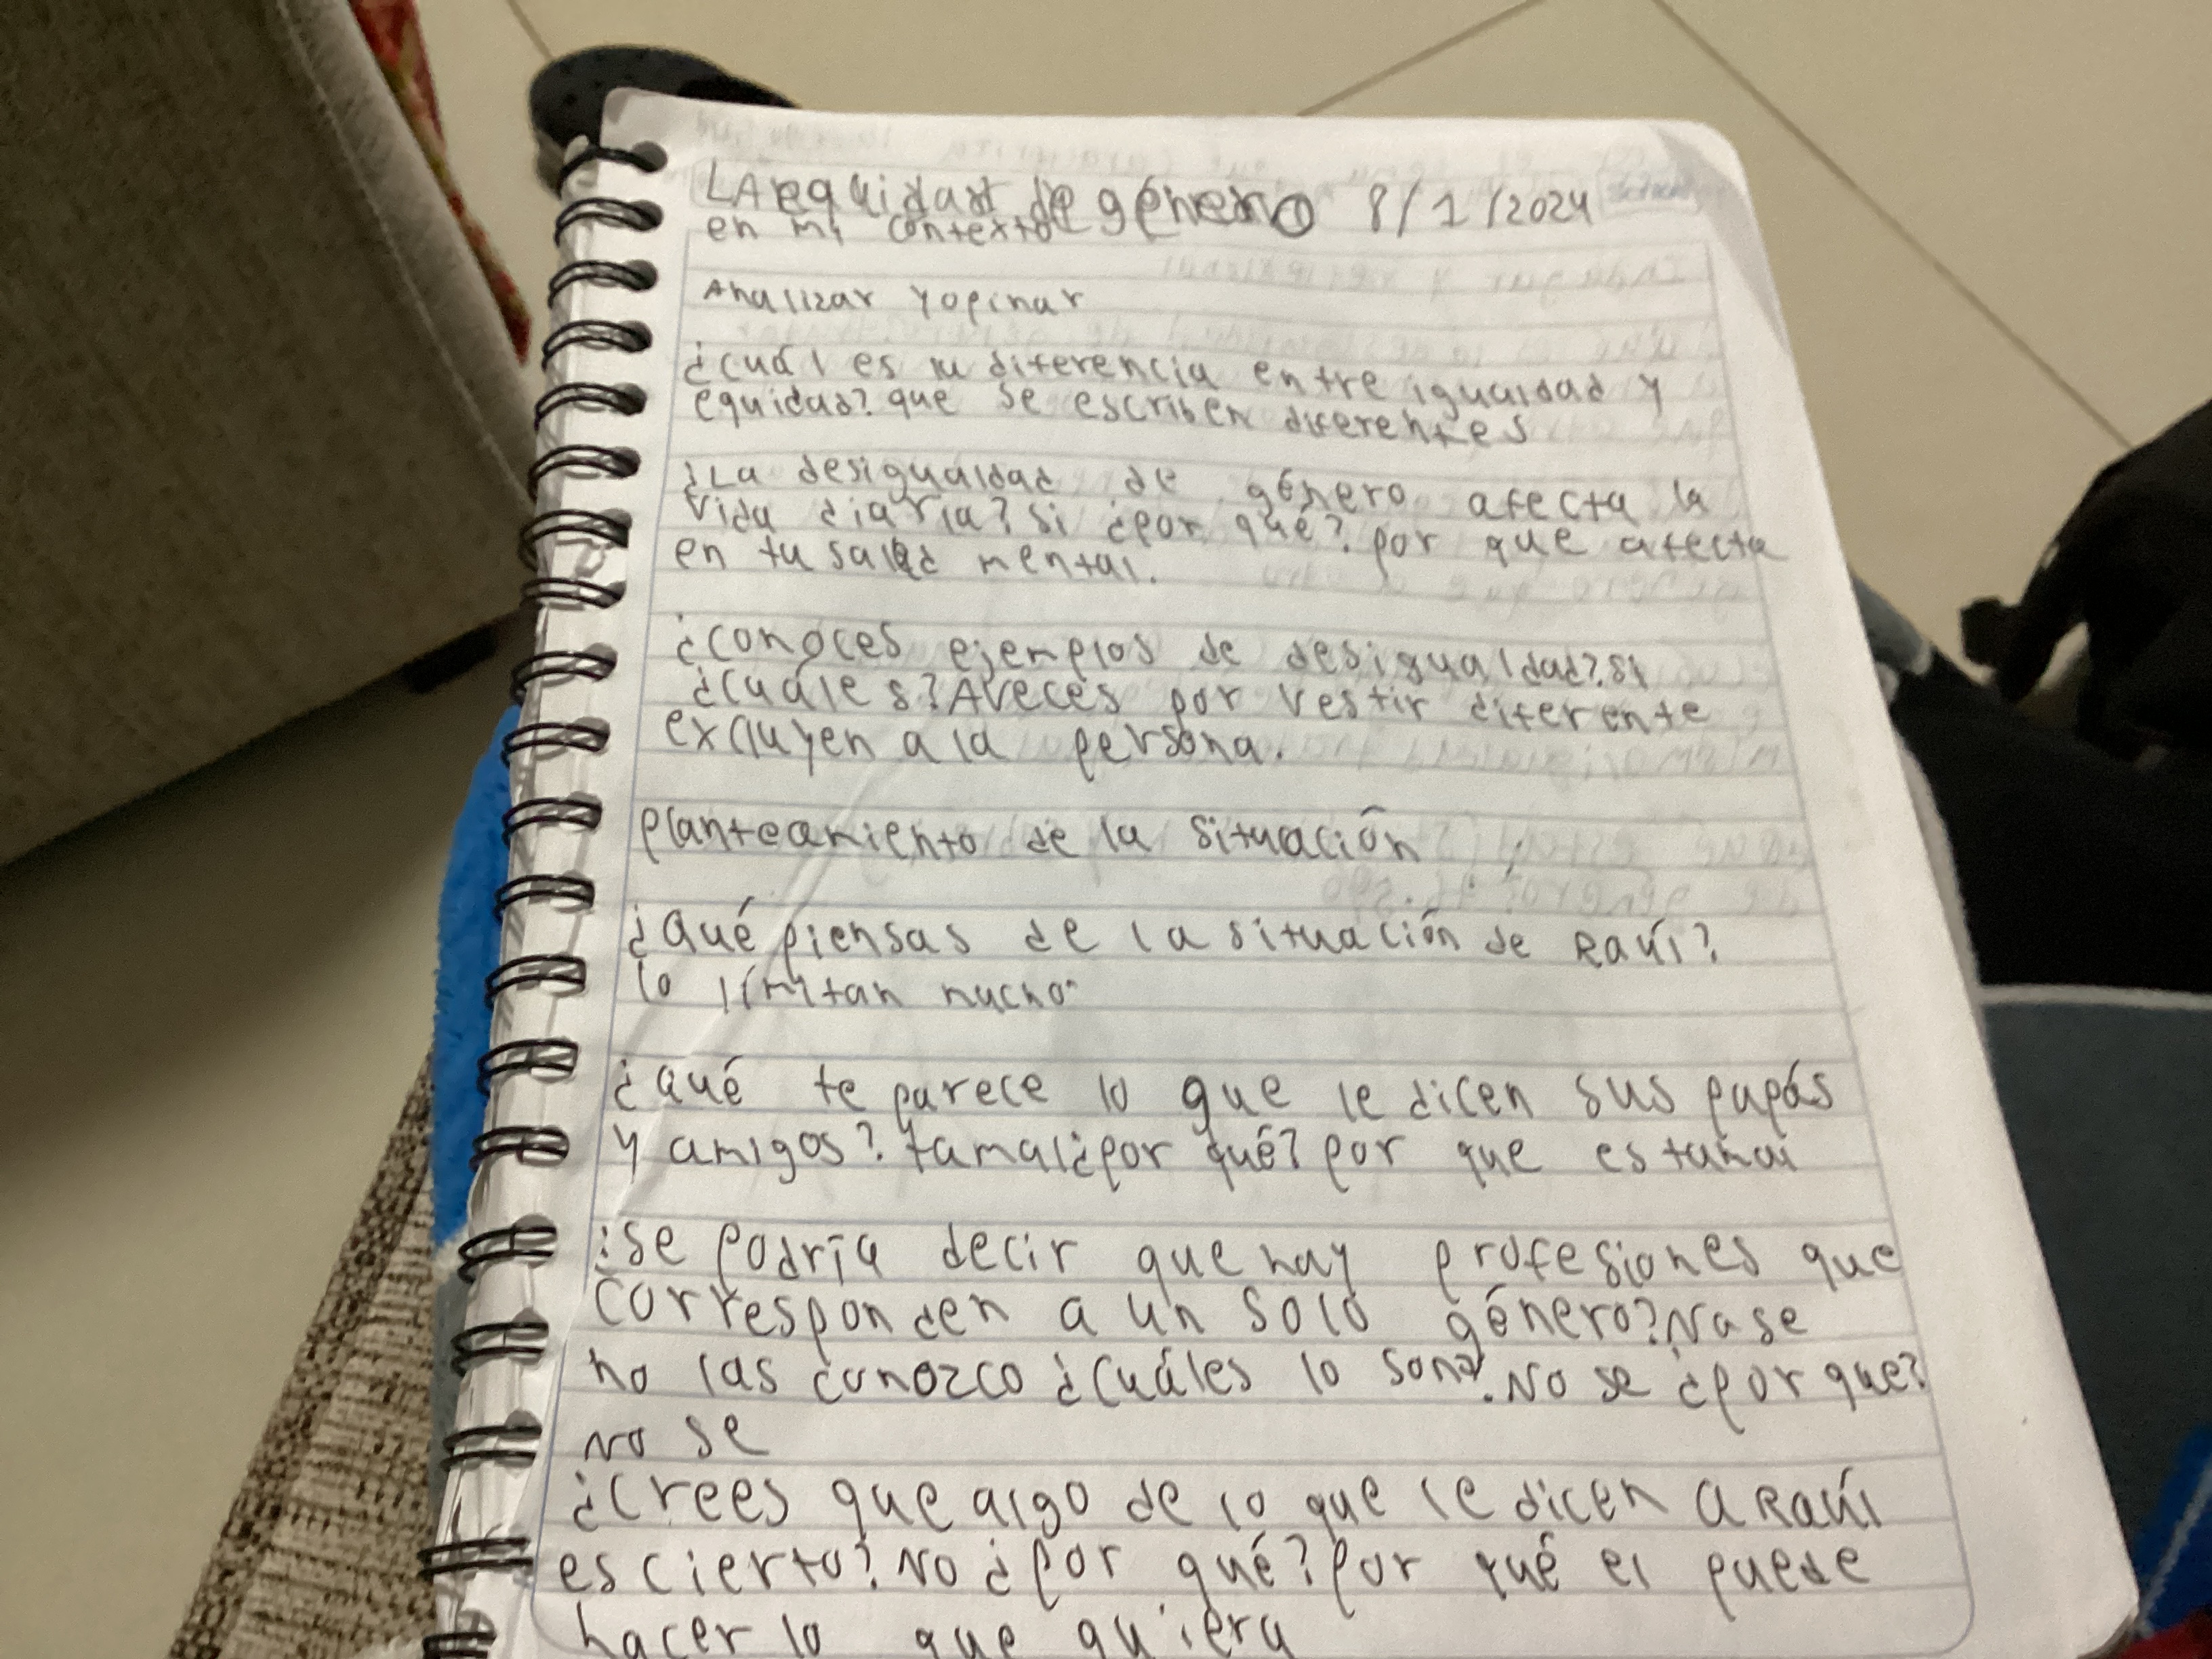 LA equidad de género 8/1/2024
en mi contexto
Analizar y opinar
¿cuál es su diferencia entre igualdad y
equidad? que se escriben diferentes
¿La desigualdad de género afecta la
vida diaria? si ¿por qué? por que afecta
en tu salud mental.
¿conoces ejemplos de desigualdad? si
¿cuáles? Aveces por vestir diferente
excluyen a la persona.
planteamiento de la situación
¿Qué piensas de la situación de Raúl?
lo límitan mucho.
¿qué te parece lo que le dicen sus papás
y amigos? tamal ¿por qué? por que estamal
¿se podría decir que hay profesiones que
corresponden a un solo género? Nose
no las conozco ¿cuáles lo son? No se ¿por que?
No se
¿crees que algo de lo que le dicen a Raúl
es cierto? No ¿por qué? por qué el puede
hacer lo que quiera